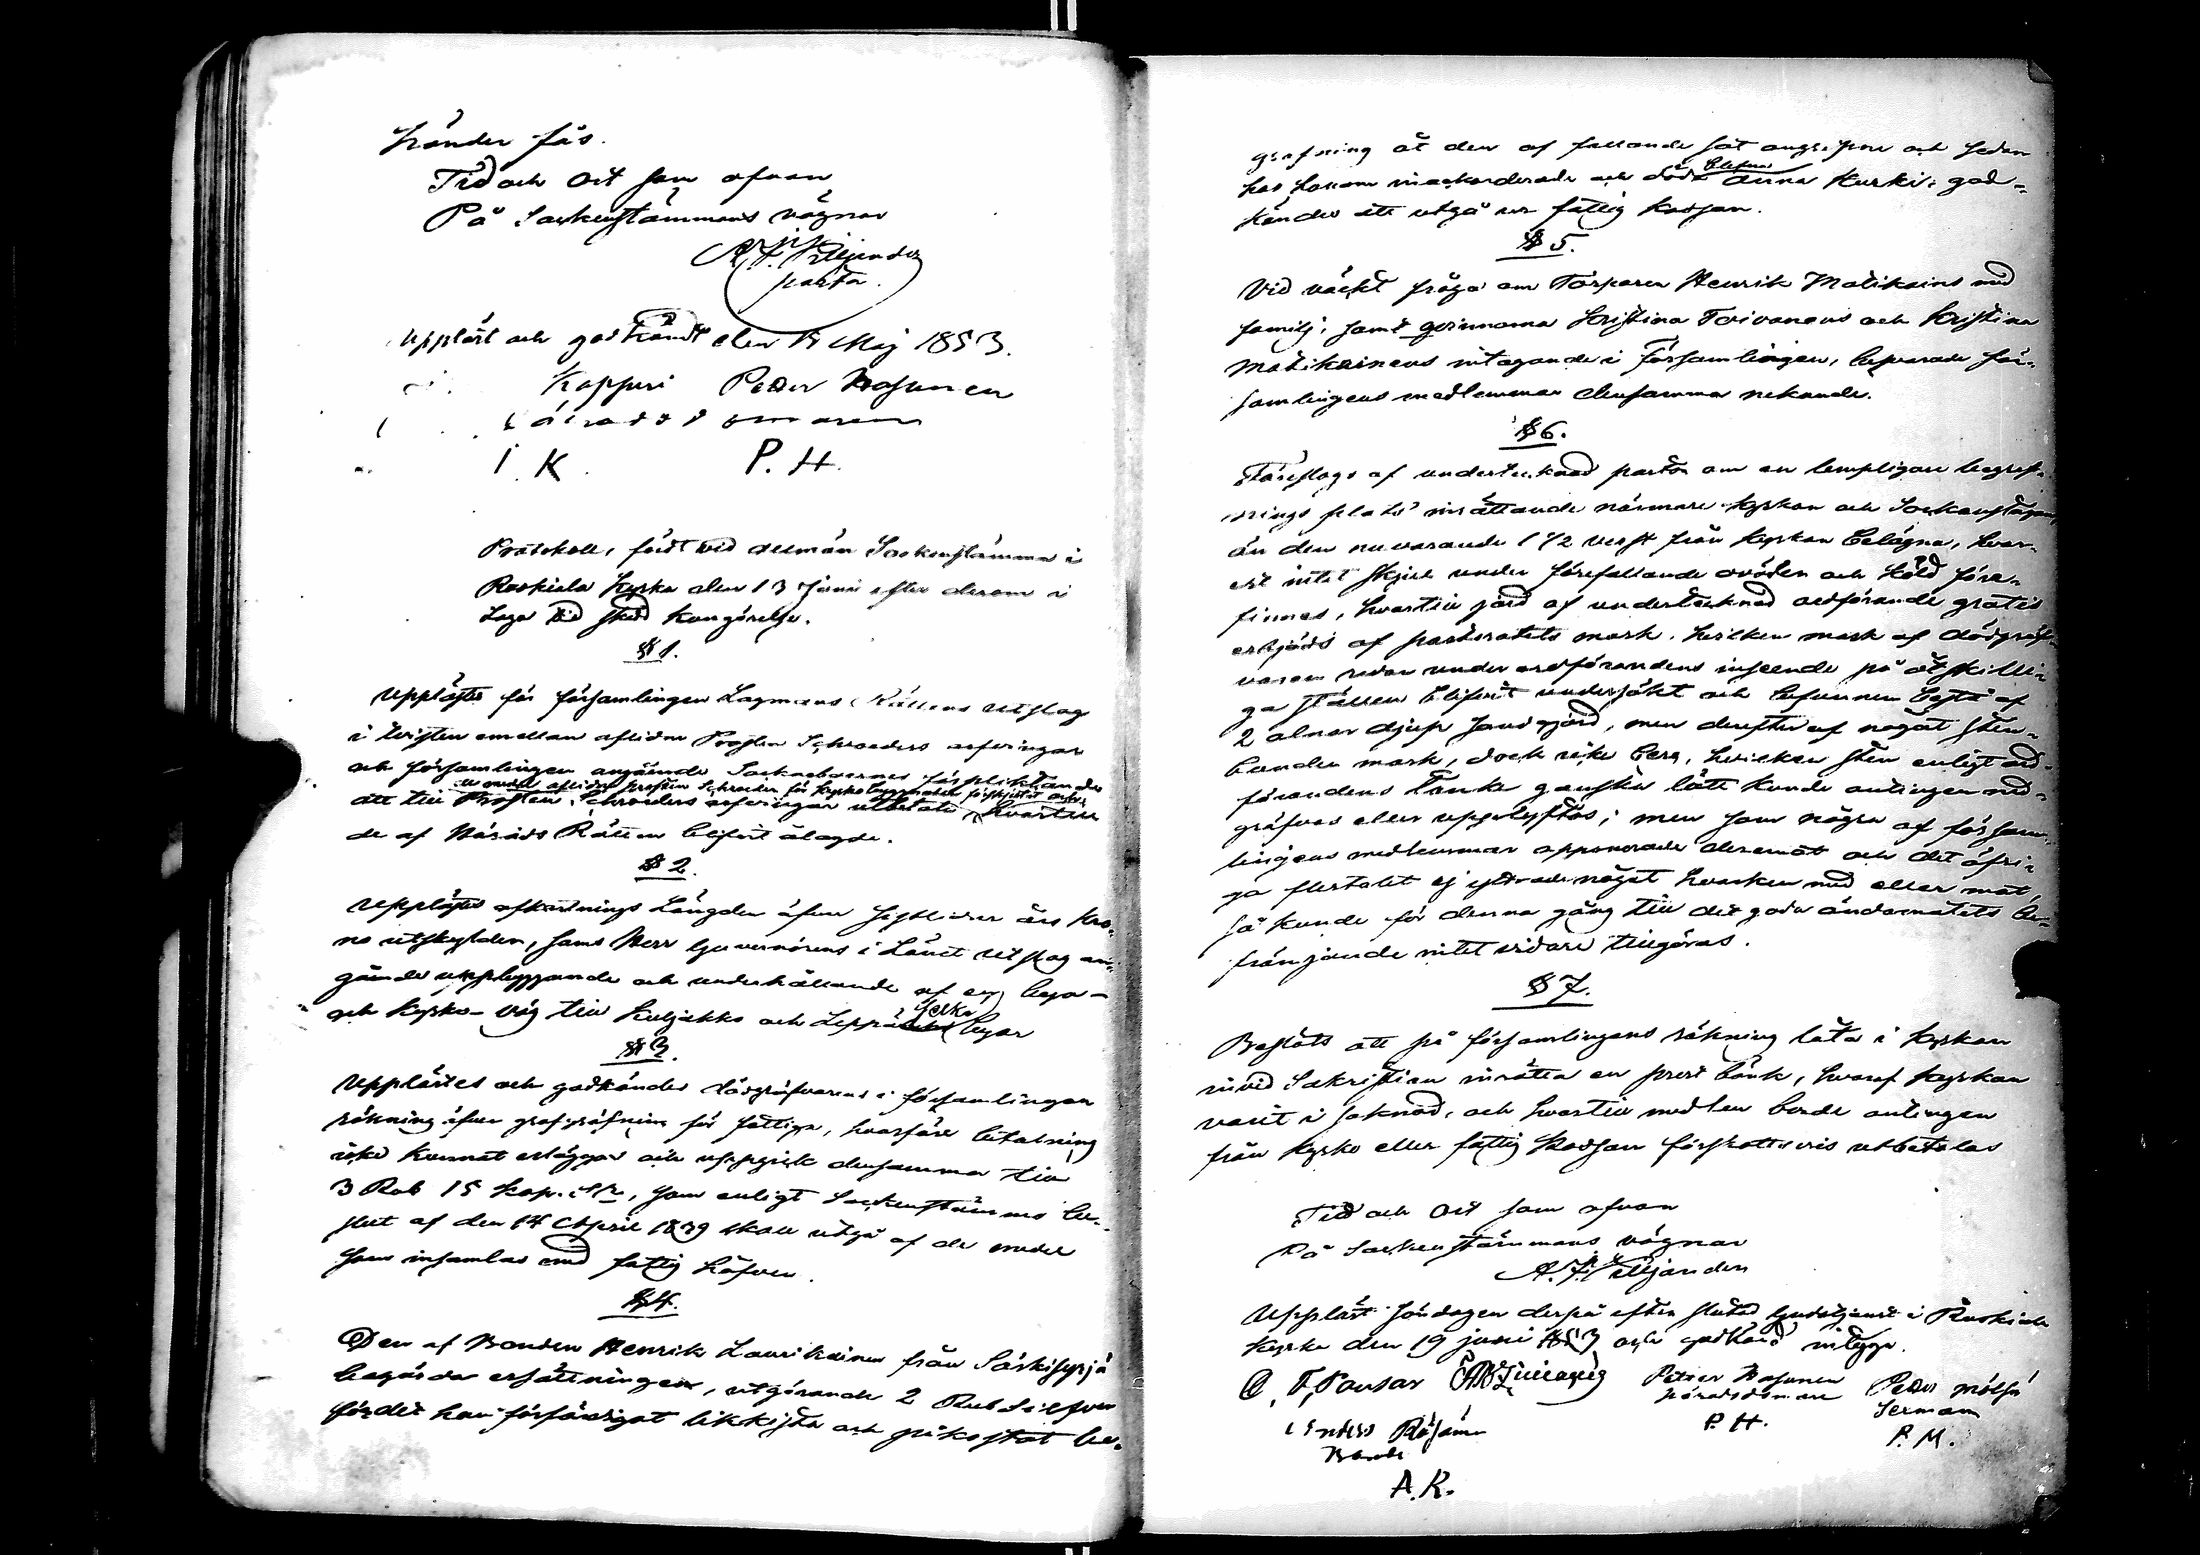 händer fås.
Tid och Ort som ofvan
På Sockenstämmans vägnar
A. F. Killjander
pastor.
Uppläst och godkändt den Maj 1853.
Kopperi Peder Hasunen
K P. H.
Protokoll, fördt vid allmän Sockenstämma i
Ruskiala Kyrka den 13 Junii efter derom i
Laga tid skedd kungörelse.
§ 1.
Upplästes för församlingen Lagmans Rättens utslag
i tvisten emellan aflidne Prosten Schroeders arfvingar
och församlingen angående Sockneboernes förpliktandes
de medel aflidne prosten Schroeder för kyrkobyggnaden förskjutit
att till Prosten Schroeders arfvingar utbetala, hvartill
de af Härads Rätten blifvit ålagde.
§ 2.
Upplästes afkortnings Längden öfver sistlidne års Kro-
no utskylder, samt Herr Guvernörens i Länet utslag an-
gående uppbyggande och underhållande af en by-
och kyrko-väg till Kuljakko och Leppäselkä byar
§ 3.
Upplästes och godkändes dödgräfvarens i församlingen
räkning öfver grafgräfning för fattiga, hvarföre betalning
icke kunnat erläggas och uppgick densamma till
3 Rub 15 kop. Sr, som enligt Sockenstämmo be-
slut af den 14 April 1839 skall utgå af de medel
som insamlas med fattig håfven.
§ 4.
Den af Bonden Henrik Laurikainen från Särkisyrjä
begärda ersättningen, utgörande 2 Rub Silfver
för det han förfärdigat likkista och påkostat be-
grafning åt den af fallande sot angripne och sedan
hos honom inackorderade och döda Enkan Anna Kurki, god-
kändes att utgå ur fattig kassan.
§ 5.
Vid väckt fråga om Torparen Henrik Matikains med
familj, samt qvinnorna Kristina Toivanens och Kristina
Matikainens intagande i församlingen, besvarade för-
samlingens medlemmar densamma nekande.
§ 6.
Föreslogs af undertecknad pastor om en lämpligare begraf-
nings plats inrättande närmare kyrkan och Sockenstugan,
än den nuvarande 1 1/2 verst från kyrkan belägna, hvar-
est intet skjul under förefallande oväder och köld före-
finnes, hvartill jord af undertecknad ordförande gratis
erbjöds af pastoratets mark, hvilken mark af dödgräf-
varen redan under ordförandens inseende på åtskilli-
ga ställen blifvit undersökt och befunnen bestå af
2 alnar djup sandjord, men derefter af något sten-
bunden mark, dock icke berg, hvilken sten enligt ord-
förandens tanke ganska lätt kunde antingen ned-
gräfvas eller upplyftas; men som några af försam-
lingens medlemmar opponerade deremot och det öfri-
ga flertalet ej yttrade något hvarken med eller mot,
så kunde för denna gång till det goda ändamålets be-
främjande intet vidare tillgöras.
§ 7.
Beslöts att på församlingens räkning låta i kyrkan
invid Sakristian inrätta en prest bänk, hvaraf kyrkan
varit i saknad, och hvartill medlen borde antingen
från Kyrko eller fattig kassan förskottsvis utbetalas
Tid och Ort som ofvan
På Sockenstämmans vägnar
A. F. Killjander
Uppläst Söndagen derpå efter slutad Gudstjenst i Ruskiala
kyrka den 19 juni 1853 och godkänd intygar.
Peter Hasunen
häradsdomare
P. H.
Anders Räsänen
Bonde
A. R.
P. M.